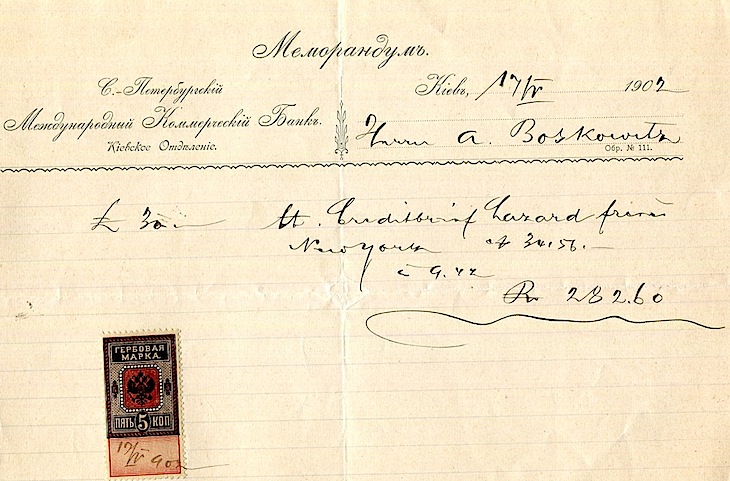 Меморандумъ.
С.-Петербургскій
Международный Коммерческій Банкъ.
Кіевское Отдѣленіе.
Кіевъ, 17/IV 1902
Herrn A. Boskowitz
Обр. № 111.
£ 30.— lt. Creditbrief Lazard frères
New York
à 9.42
Ro 282.60
ГЕРБОВАЯ
МАРКА
ПЯТЬ 5 КОП
17/IV 902